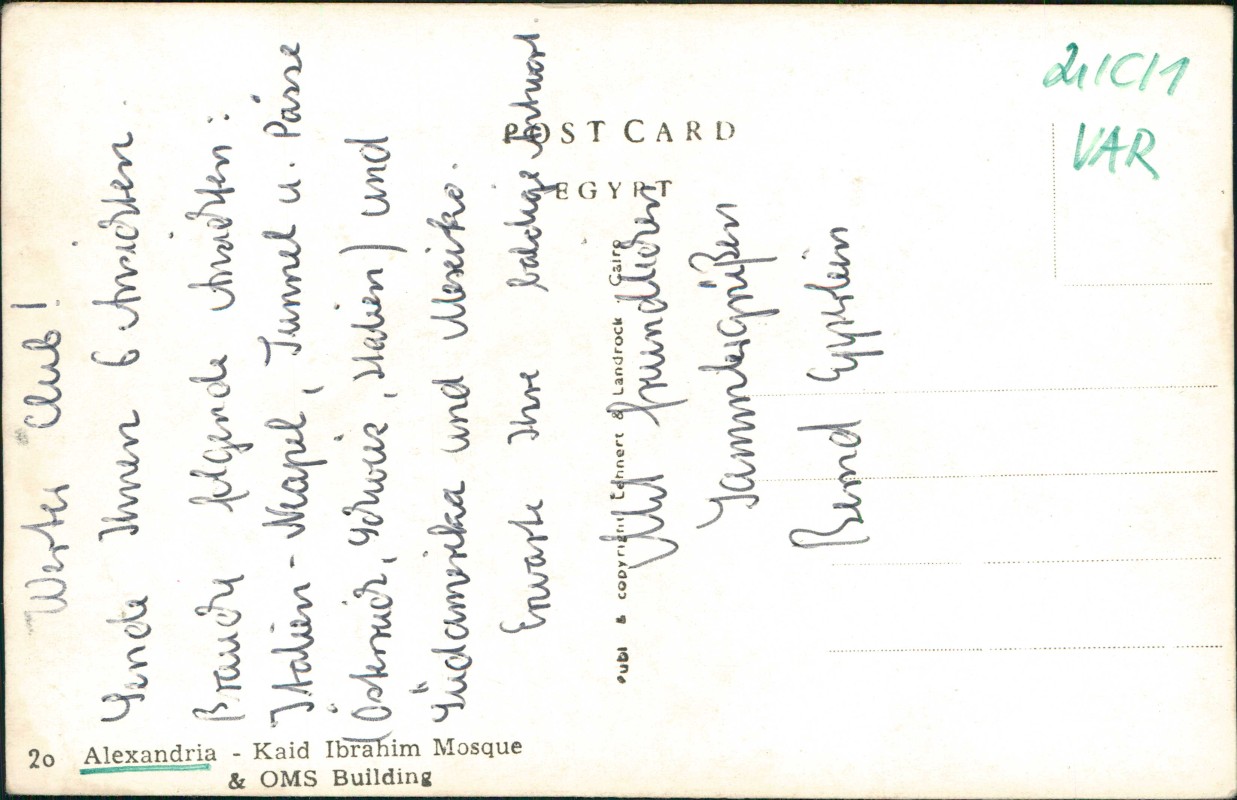 Werter Club!
Sende Ihnen 6 Ansichten.
Brauche folgende Ansichten:
Italien - Neapel, Tunnel u. Pässe
(Österreich, Schweiz, Italien) und
Südamerika und Mexiko.
Erwarte Ihre baldige Antwort.
Mit freundlichen
Sammlergrüßen
Bernd
POST CARD
EGYPT
Publ & copyright Lehnert & Landrock . Cairo
VAR
20 Alexandria - Kaid Ibrahim Mosque
& OMS Building